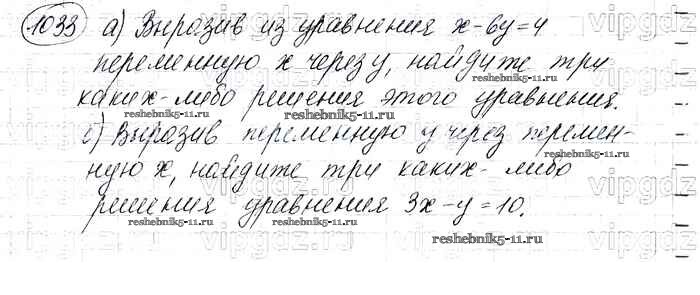 1033 а) Выразив из уравнения x-6y=4
переменную x через y, найдите три
каких-либо решения этого уравнения.
б) Выразив переменную y через перемен-
ную x, найдите три каких-либо
решения уравнения 3x-y=10.
reshebnik5-11.ru
reshebnik5-11.ru
reshebnik5-11.ru
reshebnik5-11.ru
reshebnik5-11.ru
reshebnik5-11.ru
vipgdz
vipgdz
vipgdz
vipgdz